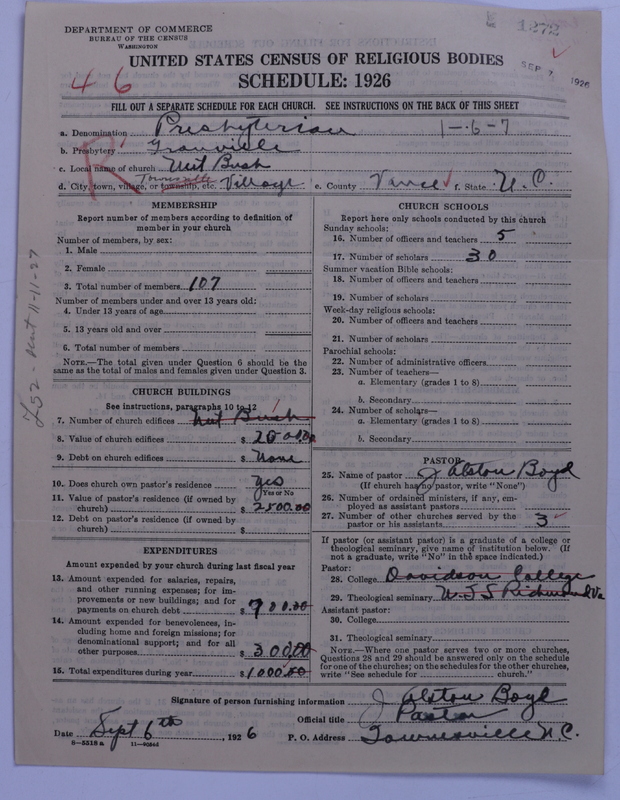 DEPARTMENT OF COMMERCE
BUREAU OF THE CENSUS
WASHINGTON
1272
UNITED STATES CENSUS OF RELIGIOUS BODIES
SCHEDULE: 1926
SEP 7 1926
4 6
FILL OUT A SEPARATE SCHEDULE FOR EACH CHURCH. SEE INSTRUCTIONS ON THE BACK OF THIS SHEET
R
a. Denomination Presbyterian 1-6-7
b. Presbytery Granville
c. Local name of church Nut Bush
d. City, town, village, or township, etc. Townsville Village e. County Vance f. State N.C.
MEMBERSHIP
Report number of members according to definition of
member in your church
Number of members, by sex:
1. Male
2. Female
3. Total number of members 107
Number of members under and over 13 years old:
4. Under 13 years of age
5. 13 years old and over
6. Total number of members
NOTE.—The total given under Question 6 should be
the same as the total of males and females given under Question 3.
CHURCH BUILDINGS
See instructions, paragraphs 10 to 12
7. Number of church edifices Nut Bush
8. Value of church edifices $ 2000.00
9. Debt on church edifices $ None
10. Does church own pastor's residence yes
Yes or No
11. Value of pastor's residence (if owned by
church) $ 2500.00
12. Debt on pastor's residence (if owned by
church) $
EXPENDITURES
Amount expended by your church during last fiscal year
13. Amount expended for salaries, repairs,
and other running expenses; for im-
provements or new buildings; and for
payments on church debt $
14. Amount expended for benevolences, in-
cluding home and foreign missions; for
denominational support; and for all
other purposes $ 300.00
15. Total expenditures during year $ 1000.00
CHURCH SCHOOLS
Report here only schools conducted by this church
Sunday schools:
16. Number of officers and teachers 5
17. Number of scholars 30
Summer vacation Bible schools:
18. Number of officers and teachers
19. Number of scholars
Week-day religious schools:
20. Number of officers and teachers
21. Number of scholars
Parochial schools:
22. Number of administrative officers
23. Number of teachers—
a. Elementary (grades 1 to 8)
b. Secondary
24. Number of scholars—
a. Elementary (grades 1 to 8)
b. Secondary
PASTOR
25. Name of pastor J Alston Boyd
(If church has no pastor, write "None")
26. Number of ordained ministers, if any, em-
ployed as assistant pastors
27. Number of other churches served by the
pastor or his assistants 3
If pastor (or assistant pastor) is a graduate of a college or
theological seminary, give name of institution below. (If
not a graduate, write "No" in the space indicated.)
Pastor:
28. College Davidson College
29. Theological seminary U.T.S Richmond Va
Assistant pastor:
30. College
31. Theological seminary
NOTE.—Where one pastor serves two or more churches,
Questions 28 and 29 should be answered only on the schedule
for one of the churches; on the schedules for the other churches,
write "See schedule for church."
Signature of person furnishing information J Alston Boyd
Official title Pastor
Date Sept 6th, 1926 P. O. Address Townsville N.C.
6—5518 a